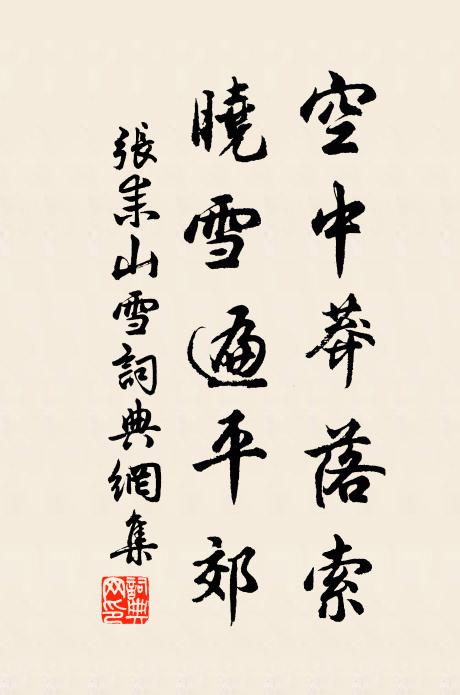 空中莽落索
曉雪遍平郊
張耒山雪詞典網集
詞典網印